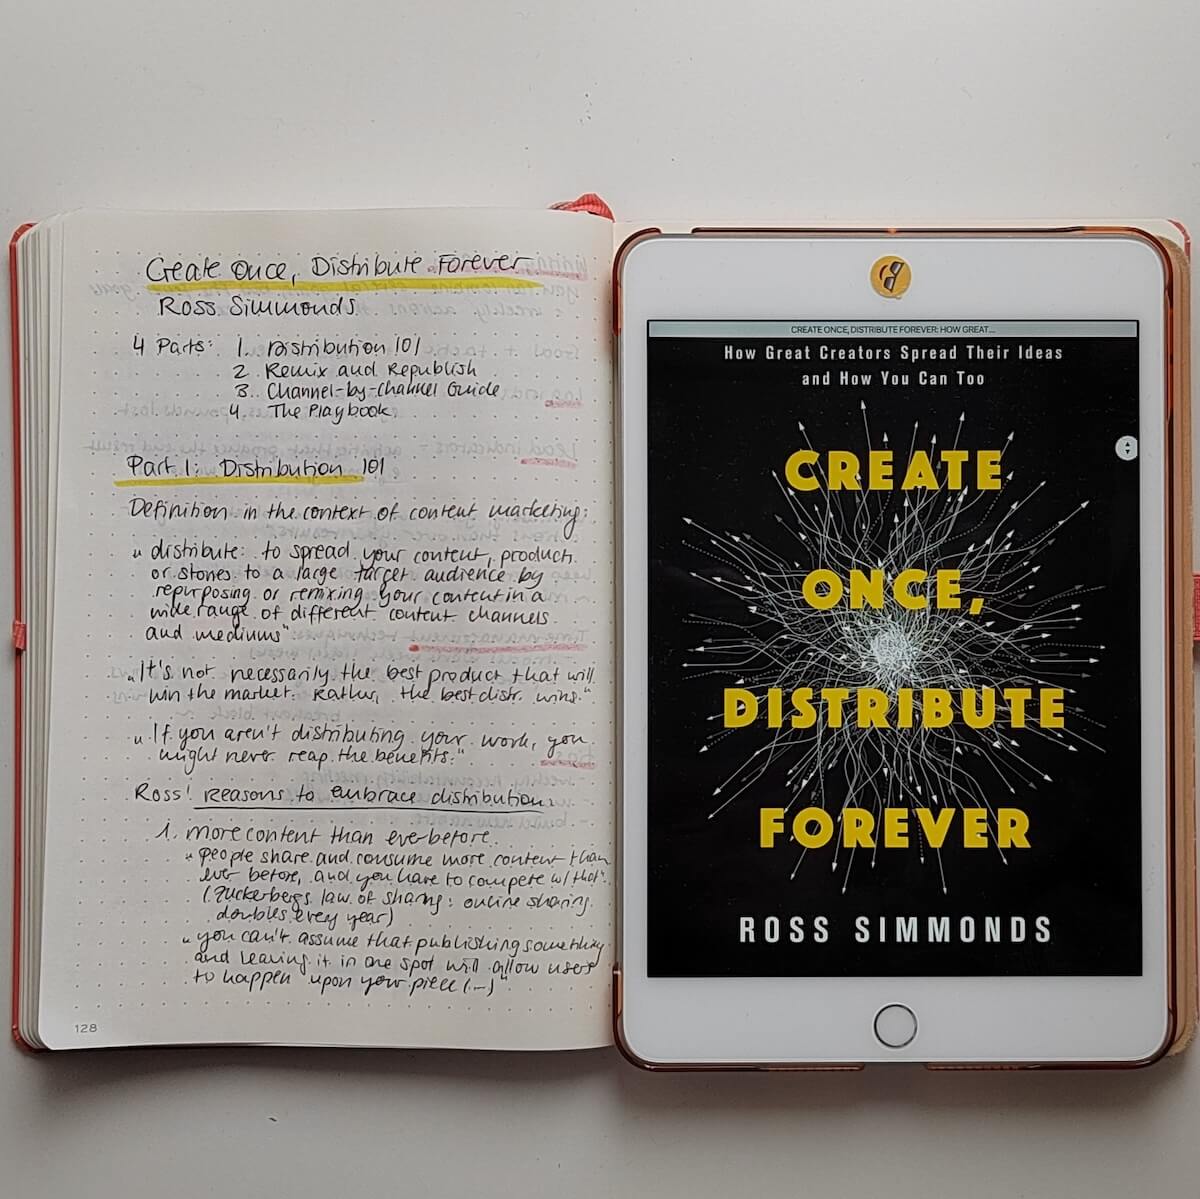 Create Once, Distribute Forever
Ross Simmonds
4 Parts: 1. Distribution 101
2. Remix and Republish
3. Channel-by-Channel Guide
4. The Playbook
Part 1: Distribution 101
Definition in the context of content marketing:
"distribute: to spread your content, product
or stories to a large target audience by
repurposing or remixing your content in a
wide range of different content channels
and mediums"
"It's not necessarily the best product that will
win the market. Rather, the best distr. wins."
"If you aren't distributing your work, you
might never reap the benefits."
Ross' reasons to embrace distribution:
1. more content than ever before
"people share and consume more content than
ever before, and you have to compete w/ that"
(Zuckerbergs law of sharing: online sharing
doubles every year)
"you can't assume that publishing something
and leaving it in one spot will allow users
to happen upon your piece (...)"
128
CREATE ONCE, DISTRIBUTE FOREVER: HOW GREAT...
How Great Creators Spread Their Ideas
and How You Can Too
CREATE
ONCE,
DISTRIBUTE
FOREVER
ROSS SIMMONDS